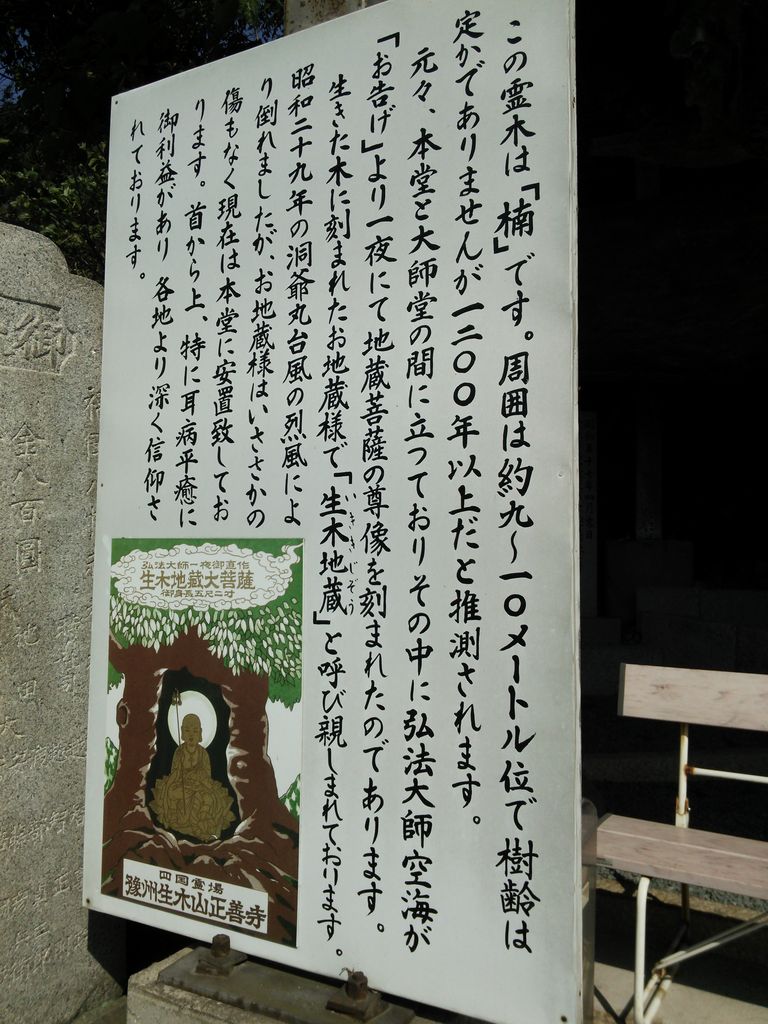 この霊木は「楠」です。周囲は約九～一〇メートル位で樹齢は
定かでありませんが一二〇〇年以上だと推測されます。
元々、本堂と大師堂の間に立つておりその中に弘法大師空海が
「お告げ」より一夜にて地蔵菩薩の尊像を刻まれたのであります。
生きた木に刻まれたお地蔵様で「生木地蔵」と呼び親しまれております。
いききじぞう
昭和二十九年の洞爺丸台風の烈風によ
り倒れましたが、お地蔵様はいささかの
傷もなく現在は本堂に安置致してお
ります。首から上、特に耳病平癒に
御利益があり各地より深く信仰さ
れております。
弘法大師一夜御直作
生木地蔵大菩薩
御身長五尺二寸
四国霊場
豫州生木山正善寺
御
金八百圓